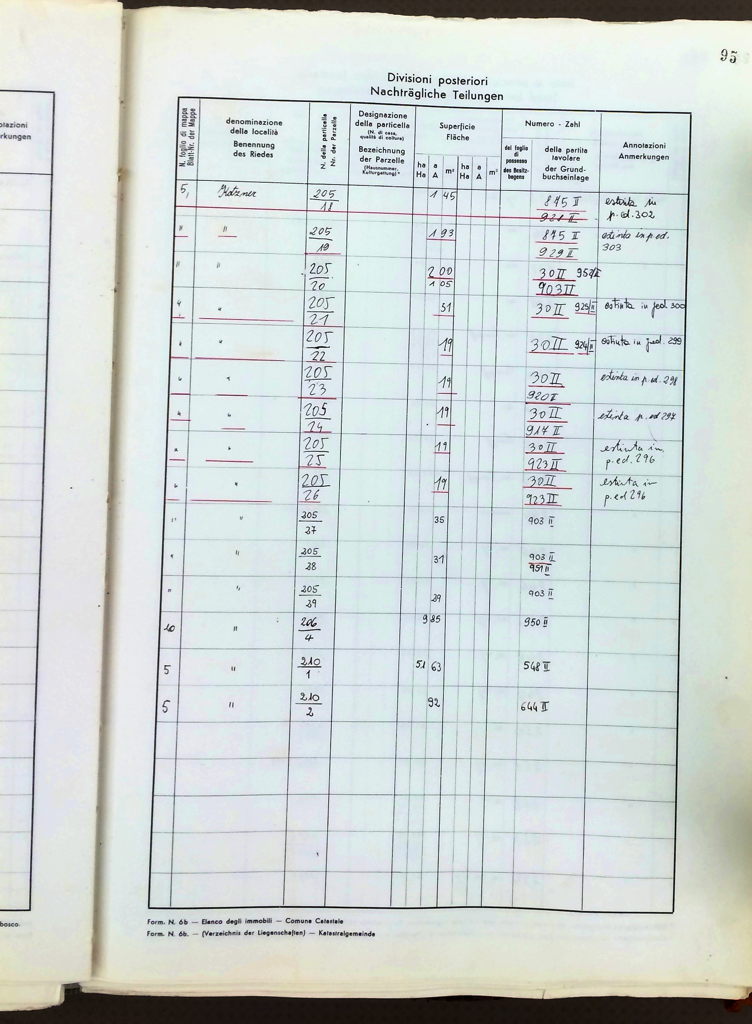 95
Divisioni posteriori
Nachträgliche Teilungen
N. foglio di mappa
Blatt-Nr. der Mappe
denominazione
della località
Benennung
des Riedes
N. della particella
Nr. der Parzelle
Designazione
della particella
(N. di casa,
qualità di coltura)
Bezeichnung
der Parzelle
(Hausnummer,
Kulturgattung)
Superficie
Fläche
ha a m² ha a m²
Ha A Ha A
Numero - Zahl
del foglio di possesso
des Besitzbogens
della partita
tavolare
der Grund-
buchseinlage
Annotazioni
Anmerkungen
5, 205/18 1 45 875 II estinta in
921 II p.ed. 302
" " 205/19 1 93 875 II estinta in p.ed.
929 II 303
" " 205/20 2 00 30 II
1 05 903 II
" 205/21 51 30 II 925/II estinta in p.ed 300
" 205/22 19 30 II 924/II estinta in p.ed. 299
" " 205/23 19 30 II estinta in p.ed. 298
920 II
" " 205/24 19 30 II estinta p.ed 297
917 II
" " 205/25 19 30 II estinta in
923 II p.ed. 296
" " 205/26 19 30 II estinta in
923 II p.ed 296
" " 205/27 35 903 II
" " 205/28 31 903 II
951 II
" " 205/29 29 903 II
10 " 206/4 9 85 950 II
5 " 210/1 51 63 548 II
5 " 210/2 92 644 II
Form. N. 6b — Elenco degli immobili — Comune Catastale
Form. N. 6b. — (Verzeichnis der Liegenschaften) — Katastralgemeinde